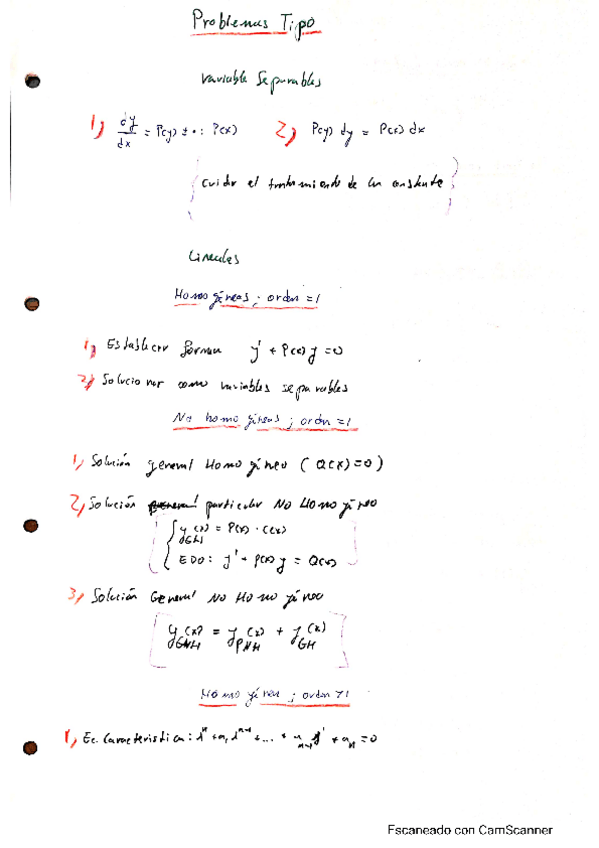 Problemas Tipo
Variable Separables
1) dy/dx = P(y) ± · : P(x) 2) P(y) dy = P(x) dx
cuidar el tratamiento de la constante
Lineales
Homogéneos ; orden = 1
1) Establecer forma y' + P(x) y = 0
2) Solucionar como variables separables
No homogéneos ; orden = 1
1) Solución general Homogéneo ( Q(x) = 0 )
2) Solución particular No Homogéneo
EDO: y' + p(x) y = Q(x)
3) Solución General No Homogéneo
y_GNH(x) = y_PNH(x) + y_GH(x)
Homogénea ; orden > 1
1) Ec. Característica: λ^n + a_1 λ^n-1 + ... + a_n-1 λ' + a_n = 0
Escaneado con CamScanner